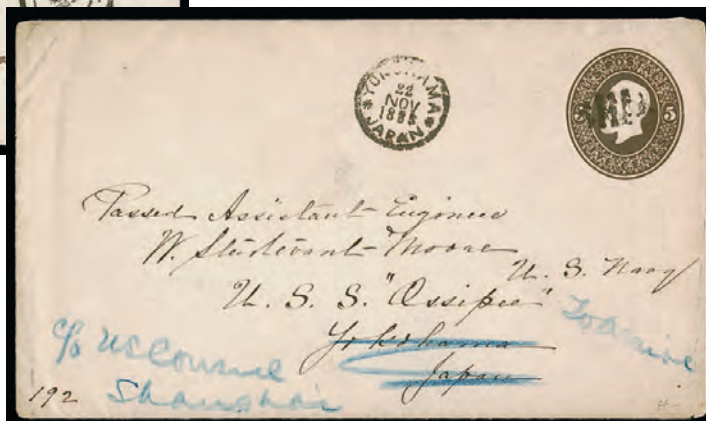 YOKOHAMA
22
NOV
1885
JAPAN
5
Passed Assistant Engineer
W. Sturdevant Moore
U. S. Navy
U. S. S. "Ossipee"
Yokohama
Japan
c/o US Consul
Shanghai
192